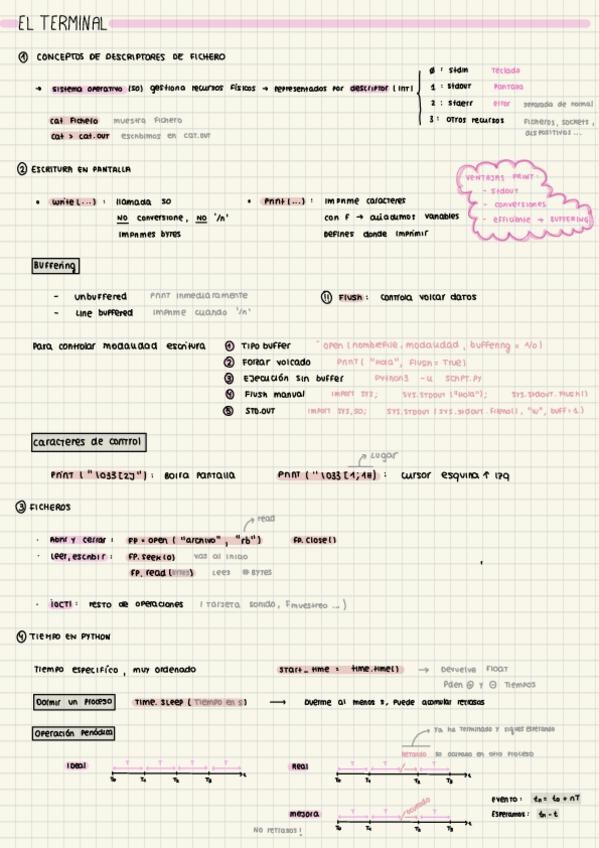 EL TERMINAL
① CONCEPTOS DE DESCRIPTORES DE FICHERO
→ sistema operativo (SO) gestiona recursos físicos → representados por descriptor (int)
0 : stdin Teclado
1 : stdout Pantalla
2 : stderr error separada de normal
3 : otros recursos Ficheros, sockets, dispositivos...
cat fichero muestra fichero
cat > cat.out escribimos en cat.out
② ESCRITURA EN PANTALLA
• write(...) : llamada SO
NO conversione, NO '/n'
imprimes bytes
• Print(...) : imprime caracteres
con F → añadimos variables
defines donde imprimir
VENTAJAS PRINT:
- stdout
- conversiones
- eficiente → BUFFERING
Buffering
- unbuffered print inmediatamente
- Line buffered imprime cuando '/n'
⑪ Flush: controla volcar datos
Para controlar modalidad escritura
① Tipo buffer open (nombefile, modalidad, buffering = 1/0)
② Forzar volcado Print( "Hola", Flush = True)
③ Ejecución sin buffer Python3 -u script.py
④ Flush manual import sys; sys.stdout ("Hola"); sys.stdout.flush()
⑤ STD.OUT import sys,so; sys.stdout (sys.stdout.fileno(), "w", buff=1)
caracteres de control
print ("\033[2J") : borra pantalla
print ("\033[1;1H) : cursor esquina ↑ izq
lugar
③ FICHEROS
read
· Abrir y cerrar : FP = open ( "archivo" , "rb") FP.close()
· Leer, escribir : FP.seek(0) vas al inicio
FP.read (BYTES) Lees # BYTES
· ioctl : resto de operaciones (tarjeta sonido, Fmuestreo ...)
④ TIEMPO EN PYTHON
Tiempo específico, muy ordenado
start_time = time.time() → Devuelve Float
Pden ⊕ y ⊖ Tiempos
Dormir un proceso Time.sleep ( Tiempo en s) → Duerme al menos s, puede acumular retrasos
Operación periódica
Ya ha terminado y sigues esperando
Retardo so ocupado en otro proceso
ideal
T T T T
T0 T1 T2 T3 t
Real
T T T
T0 T1 T2 T3 t
mejora
T T recuerdo T
T0 T1 T2 T3 t
NO retrasos!
evento : tn = t0 + nT
Esperamos : tn - t